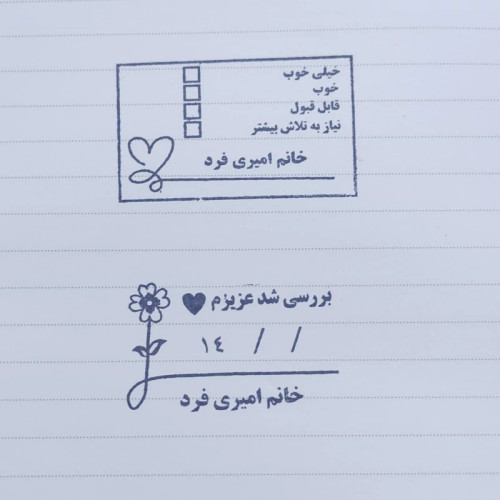 خیلی خوب
خوب
قابل قبول
نیاز به تلاش بیشتر
خانم امیری فرد
بررسی شد عزیزم
١٤ / /
خانم امیری فرد